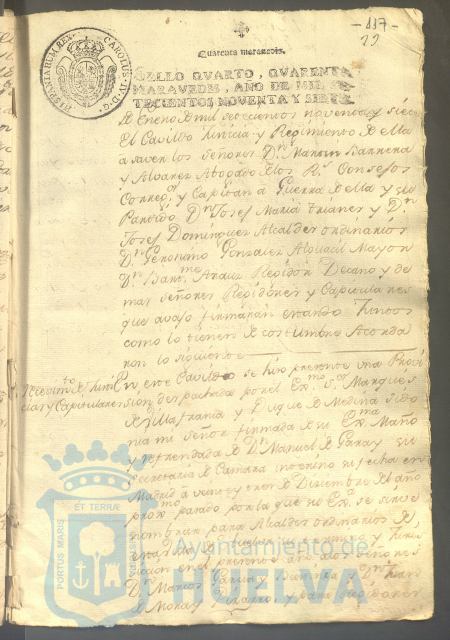 -117-
19
HISPANIARUM REX CAROLUS IV D G
Quarenta maravedis.
SELLO QVARTO, QVARENTA
MARAVEDIS, AÑO DE MIL SE-
TECIENTOS NOVENTA Y SIETE.
de Enero de mil setecientos noventa y siete
El Cavildo Justicia y Regimiento de ella
a saver los señores Dn Martin Barrera
y Alvarez Abogado de los Rs Consejos
Corregor y Capitan a Guerra de ella y su
Partido Dn Josef Maria Trianes y Dn
Josef Dominguez Alcaldes ordinarios
Dn Geronimo Gonzalez Alguacil Mayor
Dn Barme Arauz Regidor Decano y de
mas señores Regidores y Capitulares
que avajo firmaran estando Juntos
como lo tienen de costumbre Acorda
ron lo siguiente
Recivimto de Justi
cias y Capitulares
En este Cavildo se hizo presente una Provi
sion despachada por el Exmo Sor Marques
de Villafranca y Duque de Medina Sido
nia mi señor firmada de su Exma Mano
y refrendada de Dn Manuel de Garay su
Secretario de Camara su fecha en
Madrid a veinte y de Diciembre del año
proxmo pasado por la que su Exa se sirve
nombrar para Alcaldes ordinarios de
esta Villa
en el presente año a los señores
Dn Marcos Garcia y Dn Juan
de Mora y para Regidores
PORTUS MARIS ET TERRAE CUSTODIA
Ayuntamiento de
HUELVA